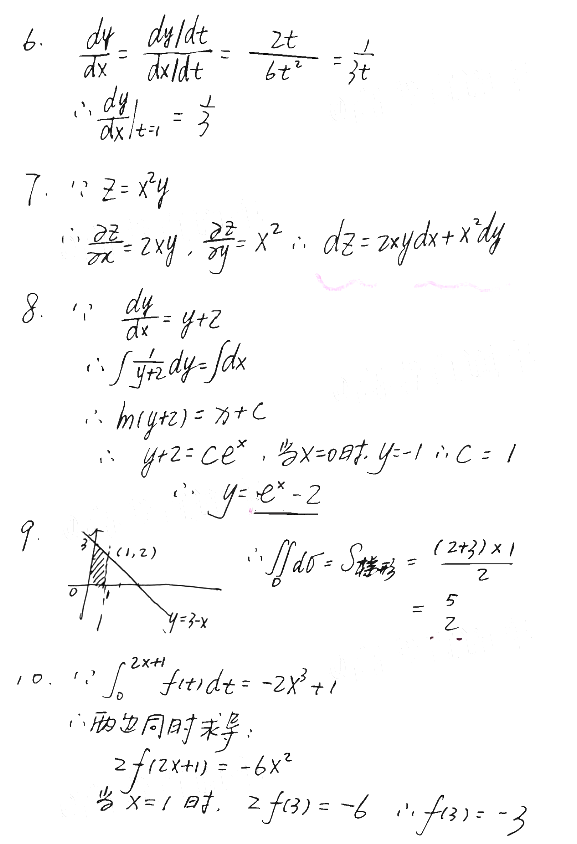 6. dy/dx = (dy/dt)/(dx/dt) = 2t/6t² = 1/3t
∴ dy/dx|t=1 = 1/3
7. ∵ z = x²y
∴ ∂z/∂x = 2xy, ∂z/∂y = x² ∴ dz = 2xydx + x²dy
8. ∵ dy/dx = y+2
∴ ∫ 1/(y+2) dy = ∫dx
∴ ln(y+2) = x + C
∴ y+2 = Ce^x, 当x=0时, y=-1 ∴ C = 1
∴ y = e^x - 2
9. 3 (1,2) 0 1 y=3-x
∴ ∬_D dσ = S梯形 = (2+3)×1/2
= 5/2
10. ∵ ∫₀^(2x+1) f(t)dt = -2x³+1
∴两边同时求导:
2f(2x+1) = -6x²
当x=1时, 2f(3) = -6 ∴ f(3) = -3